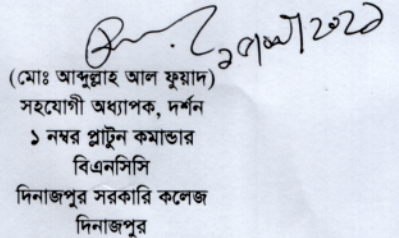 (মোঃ আব্দুল্লাহ আল ফুয়াদ)
সহযোগী অধ্যাপক, দর্শন
১ নম্বর প্লাটুন কমান্ডার
বিএনসিসি
দিনাজপুর সরকারি কলেজ
দিনাজপুর